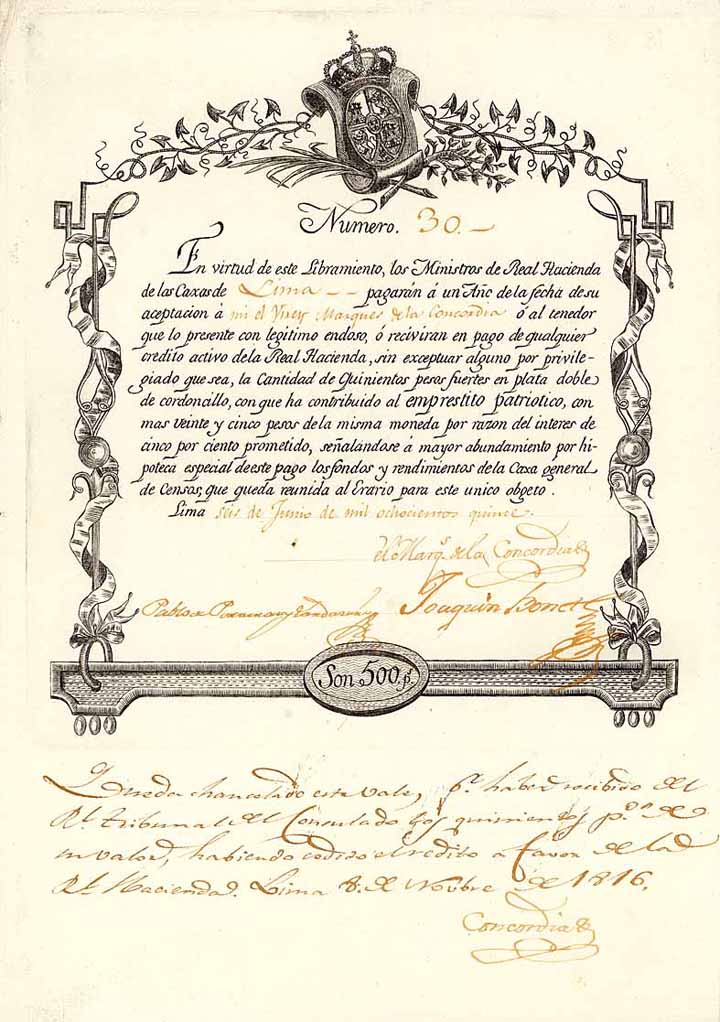 Numero. 30.—
En virtud de este Libramiento, los Ministros de Real Hacienda
de las Caxas de Lima – – pagarán á un Año de la fecha de su
aceptacion á mi el Virey Marques de la Concordia ó al tenedor
que lo presente con legitimo endoso, ó reciviran en pago de qualquier
credito activo de la Real Hacienda, sin exceptuar alguno por privile-
giado que sea, la Cantidad de Quinientos pesos fuertes en plata doble
de cordoncillo, con que ha contribuido al emprestito patriotico, con
mas veinte y cinco pesos de la misma moneda por razon del interes de
cinco por ciento prometido, señalándose á mayor abundamiento por hi-
poteca especial de este pago los fondos y rendimientos de la Caxa general
de Censos, que queda reunida al Erario para este unico obgeto.
Lima seis de Junio de mil ochocientos quince.
el Marq.s de la Concordia
Pablo Joaquin Bonet
Son 500 p.s
Queda chancelado este vale, p.r haber recibido del
R.l Tribunal del Consulado los quinientos p.s de
su valor, habiendo cedido el redito a favor de la
R.l Hacienda. Lima 8. de Novbre de 1816.
Concordia